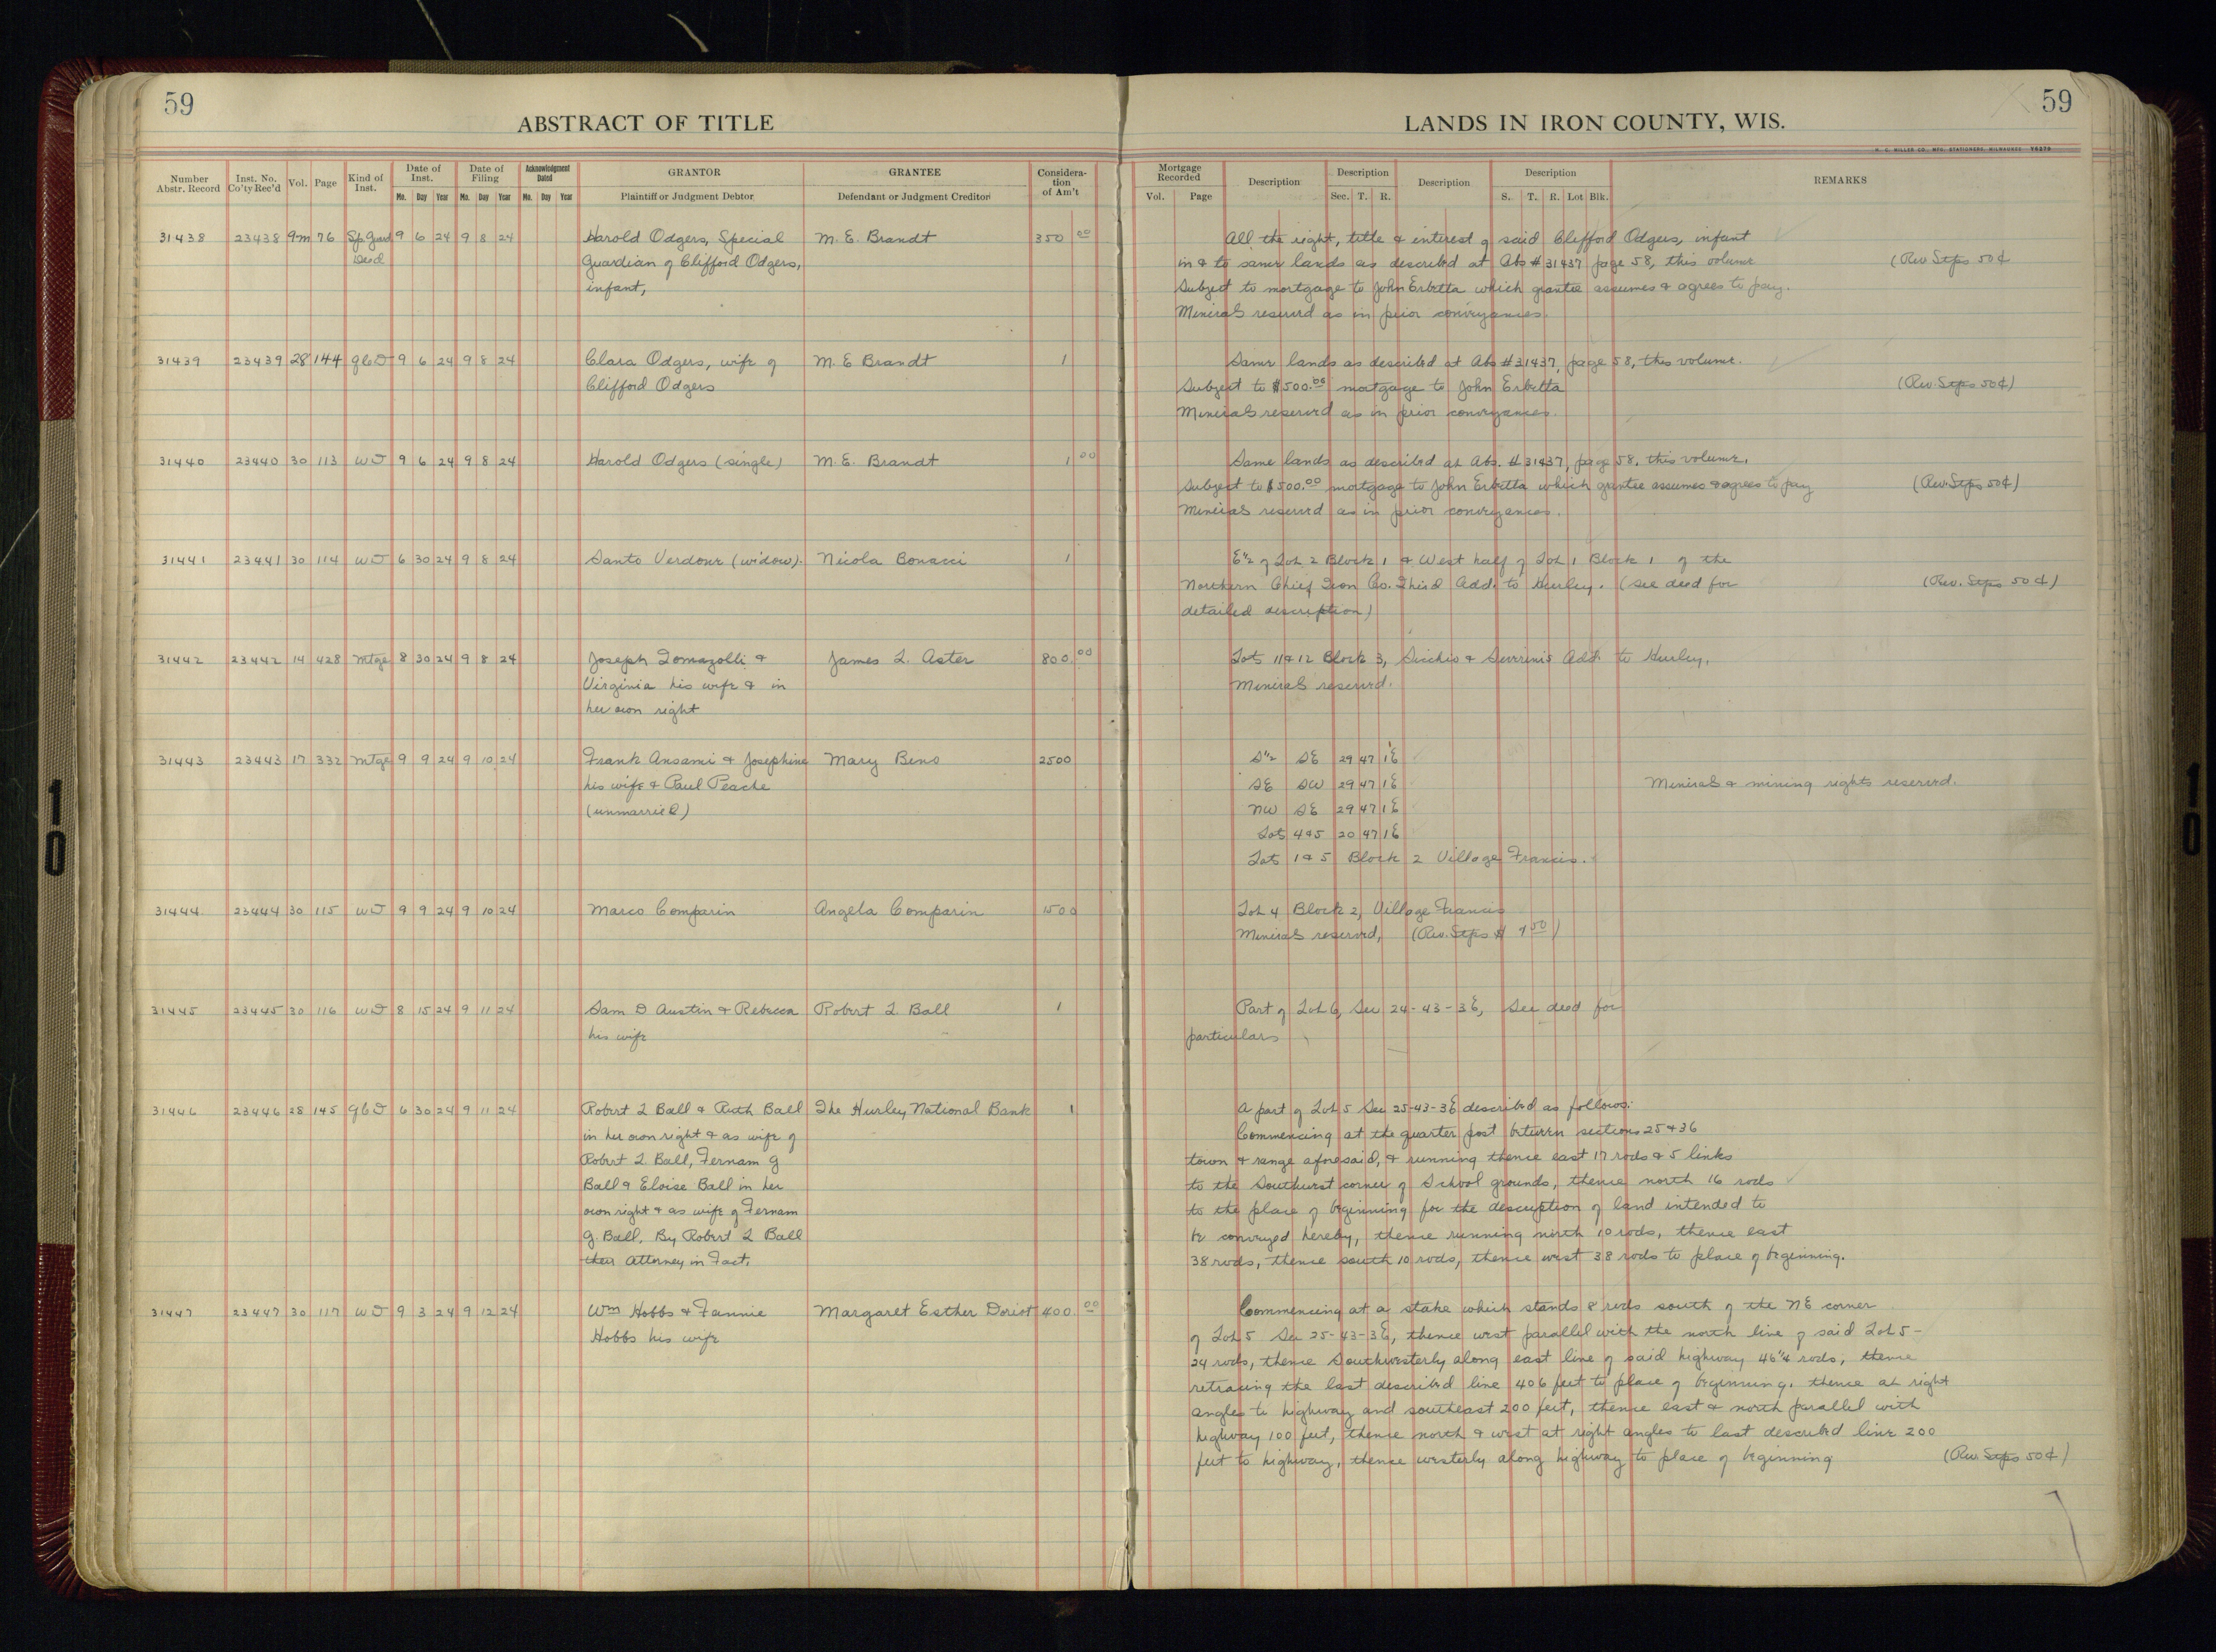 59
59
ABSTRACT OF TITLE
LANDS IN IRON COUNTY, WIS.
Number Abstr. Record
Inst. No. Co'ty Rec'd
Vol.
Page
Kind of Inst.
Date of Inst.
Mo. Day Year
Date of Filing
Mo. Day Year
Acknowledgment Dated
Mo. Day Year
GRANTOR
Plaintiff or Judgment Debtor
GRANTEE
Defendant or Judgment Creditor
Considera-tion of Am't
Mortgage Recorded
Vol. Page
Description
Description
Sec. T. R.
Description
Description
S. T. R. Lot Blk.
REMARKS
31438 23438 9m 76 Sp. Guard 9 6 24 9 8 24 Harold Odgers, Special M. E. Brandt 350 00 All the right, title & interest of said Clifford Odgers, infant
Deed Guardian of Clifford Odgers, in & to same lands as described at Abs # 31437 page 58, this volume (Rev Stps 50¢
infant, Subject to mortgage to John Erbetta which grantee assumes & agrees to pay.
Minerals reserved as in prior conveyances.
31439 23439 28 144 QCD 9 6 24 9 8 24 Clara Odgers, wife of M. E Brandt 1 Same lands as described at Abs # 31437, page 58, this volume.
Clifford Odgers Subject to $500.00 mortgage to John Erbetta (Rev. Stps 50¢)
Minerals reserved as in prior conveyances.
31440 23440 30 113 WD 9 6 24 9 8 24 Harold Odgers (single) M. E. Brandt 1 00 Same lands as described at Abs. # 31437, page 58, this volume.
Subject to $500.00 mortgage to John Erbetta which grantee assumes & agrees to pay (Rev. Stps 50¢)
Minerals reserved as in prior conveyances.
31441 23441 30 114 WD 6 30 24 9 8 24 Santo Verdone (widow). Nicola Bonacci 1 E½ of Lot 2 Block 1 & West half of Lot 1 Block 1 of the
Northern Chief Iron Co. Third Add. to Hurley. (see deed for (Rev. Stps 50¢)
detailed description)
31442 23442 14 428 Mtge 8 30 24 9 8 24 Joseph Tomazolli & James L. Aster 800. 00 Lots 11 & 12 Block 3, Sicchio & Severinis Add to Hurley.
Virginia his wife & in Minerals reserved.
her own right
31443 23443 17 332 Mtge 9 9 24 9 10 24 Frank Ansami & Josephine Mary Beno 2500 S½ SE 29 47 1E
his wife & Paul Peache SE SW 29 47 1E Minerals & mining rights reserved.
(unmarried) NW SE 29 47 1E
Lots 4&5 20 47 1E
Lots 1 & 5 Block 2 Village Francis.
31444 23444 30 115 WD 9 9 24 9 10 24 Marco Comparin Angela Comparin 1500 Lot 4 Block 2, Village Francis
Minerals reserved, (Rev. Stps $ 1 50)
31445 23445 30 116 WD 8 15 24 9 11 24 Sam D Austin & Rebecca Robert L Ball 1 Part of Lot 6, Sec 24-43-3E, See deed for
his wife particulars
31446 23446 28 145 QCD 6 30 24 9 11 24 Robert L Ball & Ruth Ball The Hurley National Bank 1 A part of Lot 5 Sec 25-43-3E described as follows:
in her own right & as wife of Commencing at the quarter post between sections 25 & 36
Robert L. Ball, Fernam G town & range aforesaid, & running thence east 17 rods & 5 links
Ball & Eloise Ball in her to the Southwest corner of School grounds, thence north 16 rods
own right & as wife of Fernam to the place of beginning for the description of land intended to
G. Ball, By Robert L Ball be conveyed hereby, thence running north 10 rods, thence east
their Attorney in Fact. 38 rods, thence south 10 rods, thence west 38 rods to place of beginning.
31447 23447 30 117 WD 9 3 24 9 12 24 Wm Hobbs & Fannie Margaret Esther Doriot 400. 00 Commencing at a stake which stands 8 rods south of the NE corner
Hobbs his wife of Lot 5 Sec 25-43-3E, thence west parallel with the north line of said Lot 5-
24 rods, thence Southwesterly along east line of said highway 46¼ rods, thence
retracing the last described line 406 feet to place of beginning, thence at right
angles to highway and southeast 200 feet, thence east & north parallel with
highway 100 feet, thence north & west at right angles to last described line 200
feet to highway, thence westerly along highway to place of beginning (Rev. Stps 50¢)
10
10